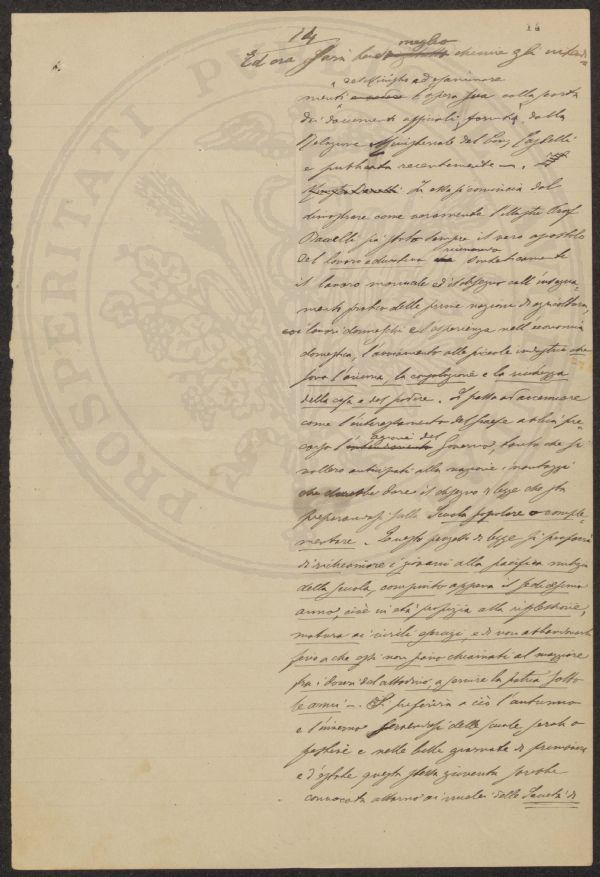 14
14
Ed ora sarà bene meglio chiarire gli intendi=
menti l'opera sua colla scorta
dei documenti ufficiali forniti dalla
Relazione Ministeriale del
e pubblicata recentemente
In essa si comincia dal
dimostrare come veramente l'illustre Prof
Baccelli sia stato sempre il vero apostolo
del lavoro educativo riunendo
il lavoro manuale ed il disegno coll'insegna=
mento pratico delle prime nozioni di agricoltura,
coi lavori donneschi e l'esperienza nell'economia
domestica, l'avviamento alle piccole industrie che
sono l'anima, la consolazione e la ricchezza
della casa e del podere. Si passa ad accennare
come l'interessamento del paese abbia pre=
corso l' azione del Governo, tanto che si
vollero anticipati alla nazione i vantaggi
che dovrebbe dare il disegno di legge che sta
preparandosi sulla Scuola popolare e comple=
mentare. Questo progetto di legge si propone
di richiamare i giovani alla pacifica milizia
della scuola, compiuto appena il sedicesimo
anno, cioè in età propizia alla riflessione,
matura ai civili esercizi, e di non abbandonarli
fino a che essi non siano chiamati al maggiore
fra i doveri del cittadino, a servire la patria sotto
le armi. Si preferiria a ciò l'autunno
e l'inverno delle scuole serali o
festive e nelle belle giornate di primavera
e d'estate questa stessa gioventù sarebbe
convocata attorno ai nuclei delle Società di